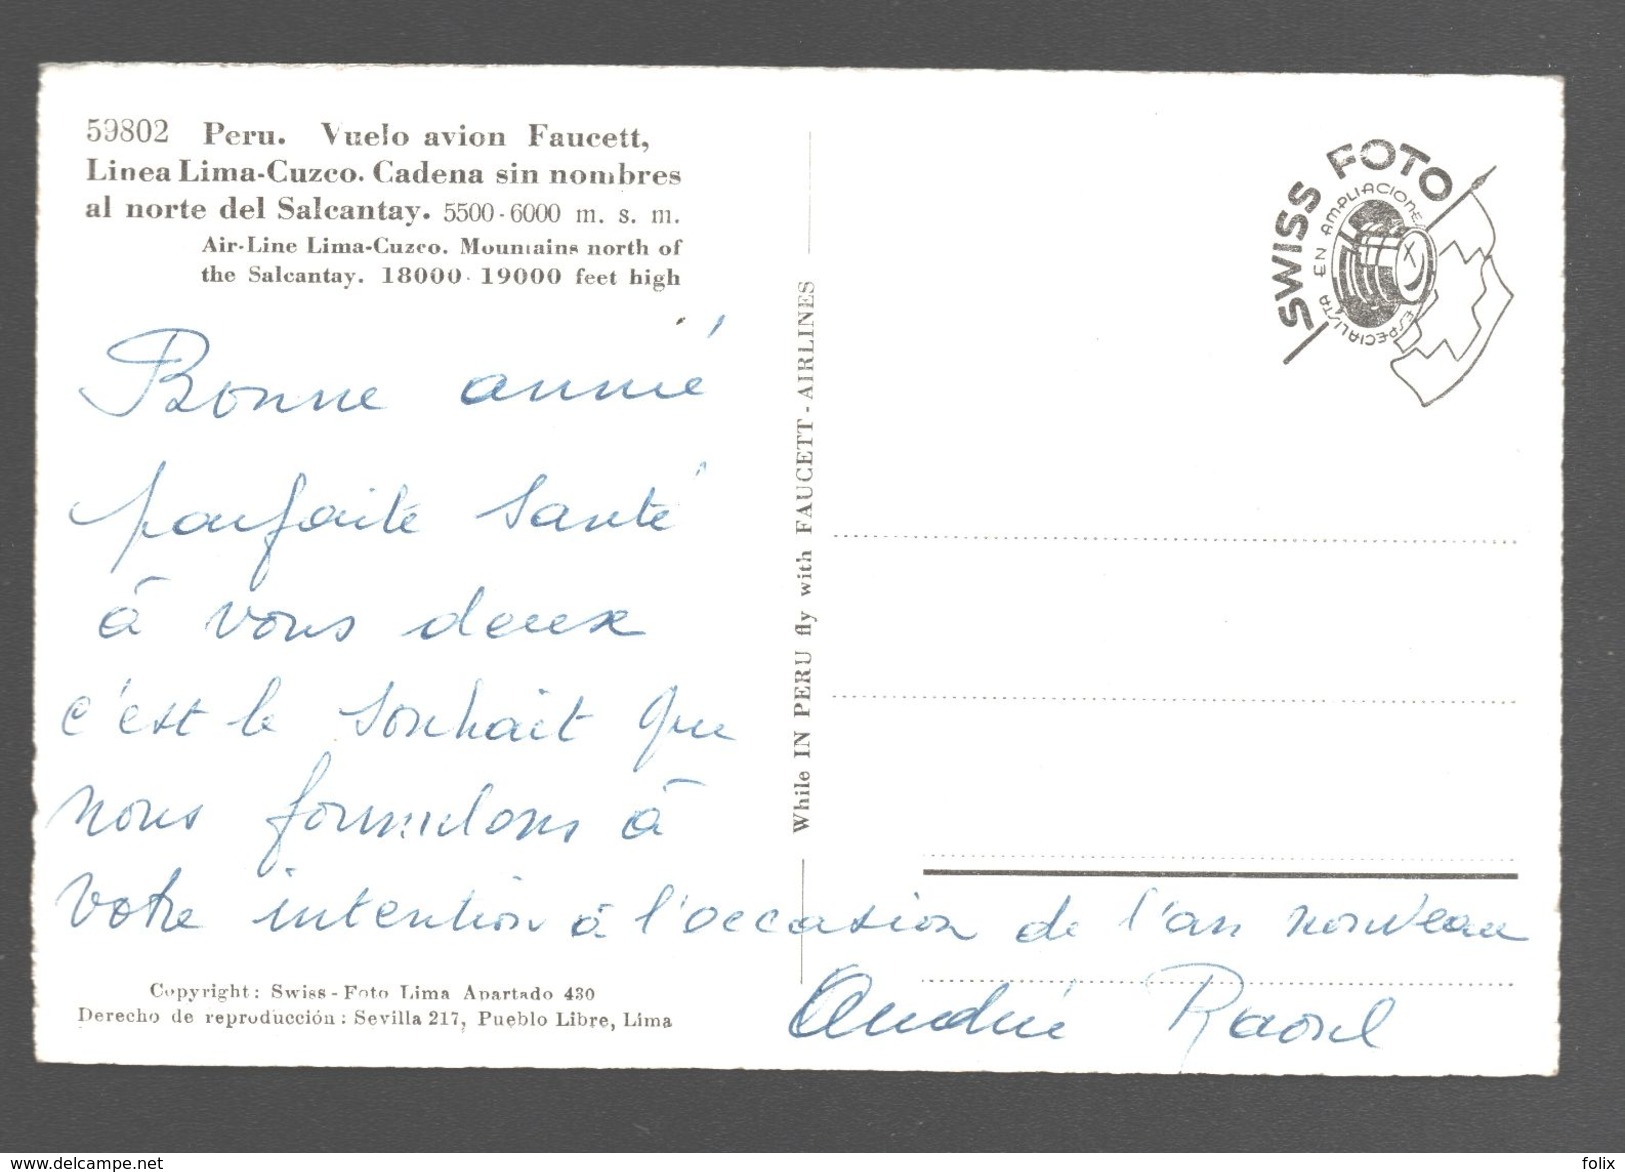 59802 Peru. Vuelo avion Faucett,
Linea Lima-Cuzco. Cadena sin nombres
al norte del Salcantay. 5500-6000 m. s. m.
Air-Line Lima-Cuzco. Mountains north of
the Salcantay. 18000-19000 feet high
Bonne année
parfaite santé
à vous deux
c'est le souhait que
nous formulons à
votre intention à l'occasion de l'an nouveau
Andrée Raoul
Copyright: Swiss-Foto Lima Apartado 430
Derecho de reproducción: Sevilla 217, Pueblo Libre, Lima
While IN PERU fly with FAUCETT-AIRLINES
SWISS FOTO
ESPECIALISTA EN AMPLIACIONES
delcampe.net
folix